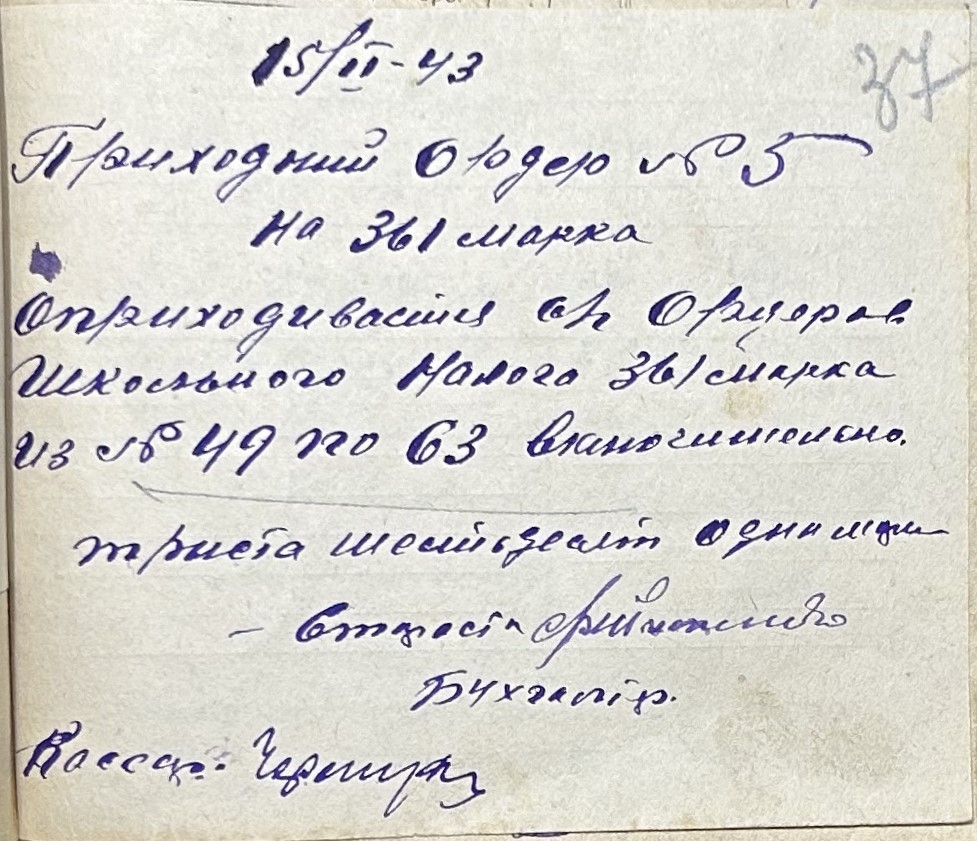 15/II-43
37
Приходний Ордер № 5
на 361 марка
Оприходивается от Ордеров
Школьного Налога 361 марка
из № 49 по 63 включительно.
триста шестьдесят одна марк
- Староста
Бухгалтер.
Кассир.